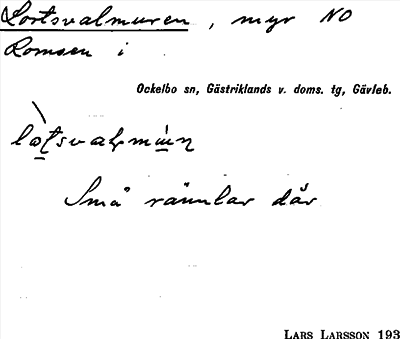 Lortsvalmuren, myr NO
Romsen i
Ockelbo sn, Gästriklands v. doms. tg, Gävleb.
Små rännlar där
LARS LARSSON 193